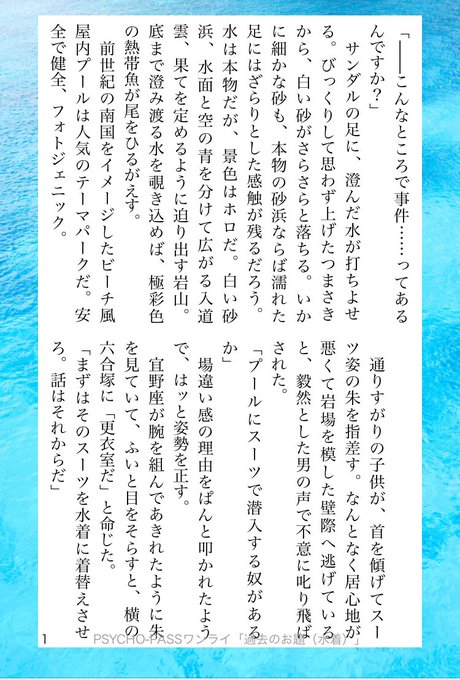 「――こんなところで事件……ってある
んですか？」
　サンダルの足に、澄んだ水が打ちよせ
る。びっくりして思わず上げたつまさき
から、白い砂がさらさらと落ちる。いか
に細かな砂も、本物の砂浜ならば濡れた
足にはざらりとした感触が残るだろう。
水は本物だが、景色はホロだ。白い砂
浜、水面と空の青を分けて広がる入道
雲、果てを定めるように迫り出す岩山。
底まで澄み渡る水を覗き込めば、極彩色
の熱帯魚が尾をひるがえす。
　前世紀の南国をイメージしたビーチ風
屋内プールは人気のテーマパークだ。安
全で健全、フォトジェニック。
　通りすがりの子供が、首を傾げてスー
ツ姿の朱を指差す。なんとなく居心地が
悪くて岩場を模した壁際へ逃げている
と、毅然とした男の声で不意に叱り飛ば
された。
「プールにスーツで潜入する奴がある
か」
　場違い感の理由をぱんと叩かれたよう
で、はッと姿勢を正す。
　宜野座が腕を組んであきれたように朱
を見ていて、ふいと目をそらすと、横の
六合塚に「更衣室だ」と命じた。
「まずはそのスーツを水着に着替えさせ
ろ。話はそれからだ」
1
PSYCHO-PASSワンライ「過去のお題（水着）」